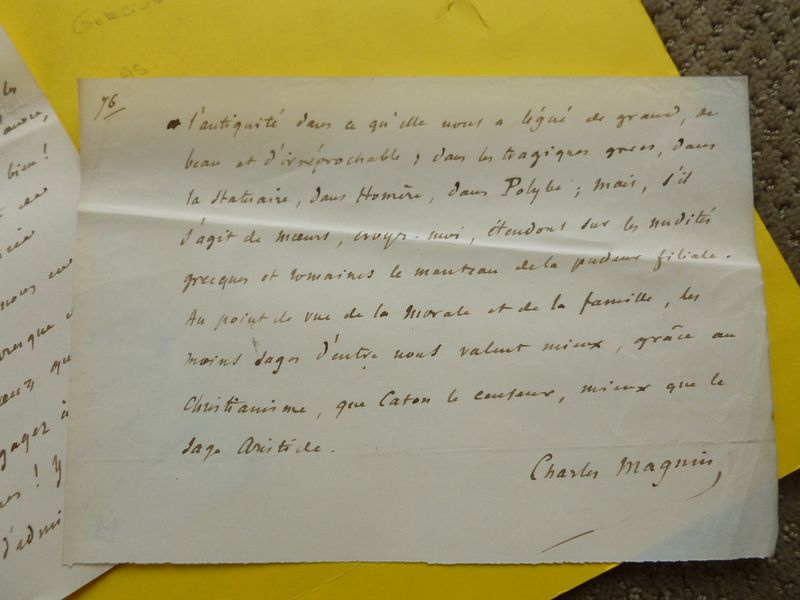 les
bien!
nous en
presque
gager à
d'admi
76
l'antiquité dans ce qu'elle nous a légué de grand, de
beau et d'irréprochable; dans les tragiques grecs, dans
la statuaire, dans Homère, dans Polybe; mais, s'il
s'agit de mœurs, croyez-moi, étendons sur les nudités
grecques et romaines le manteau de la pudeur filiale.
Au point de vue de la morale et de la famille, les
moins sages d'entre nous valent mieux, grâce au
Christianisme, que Caton le censeur, mieux que le
sage Aristide.
Charles Magnin